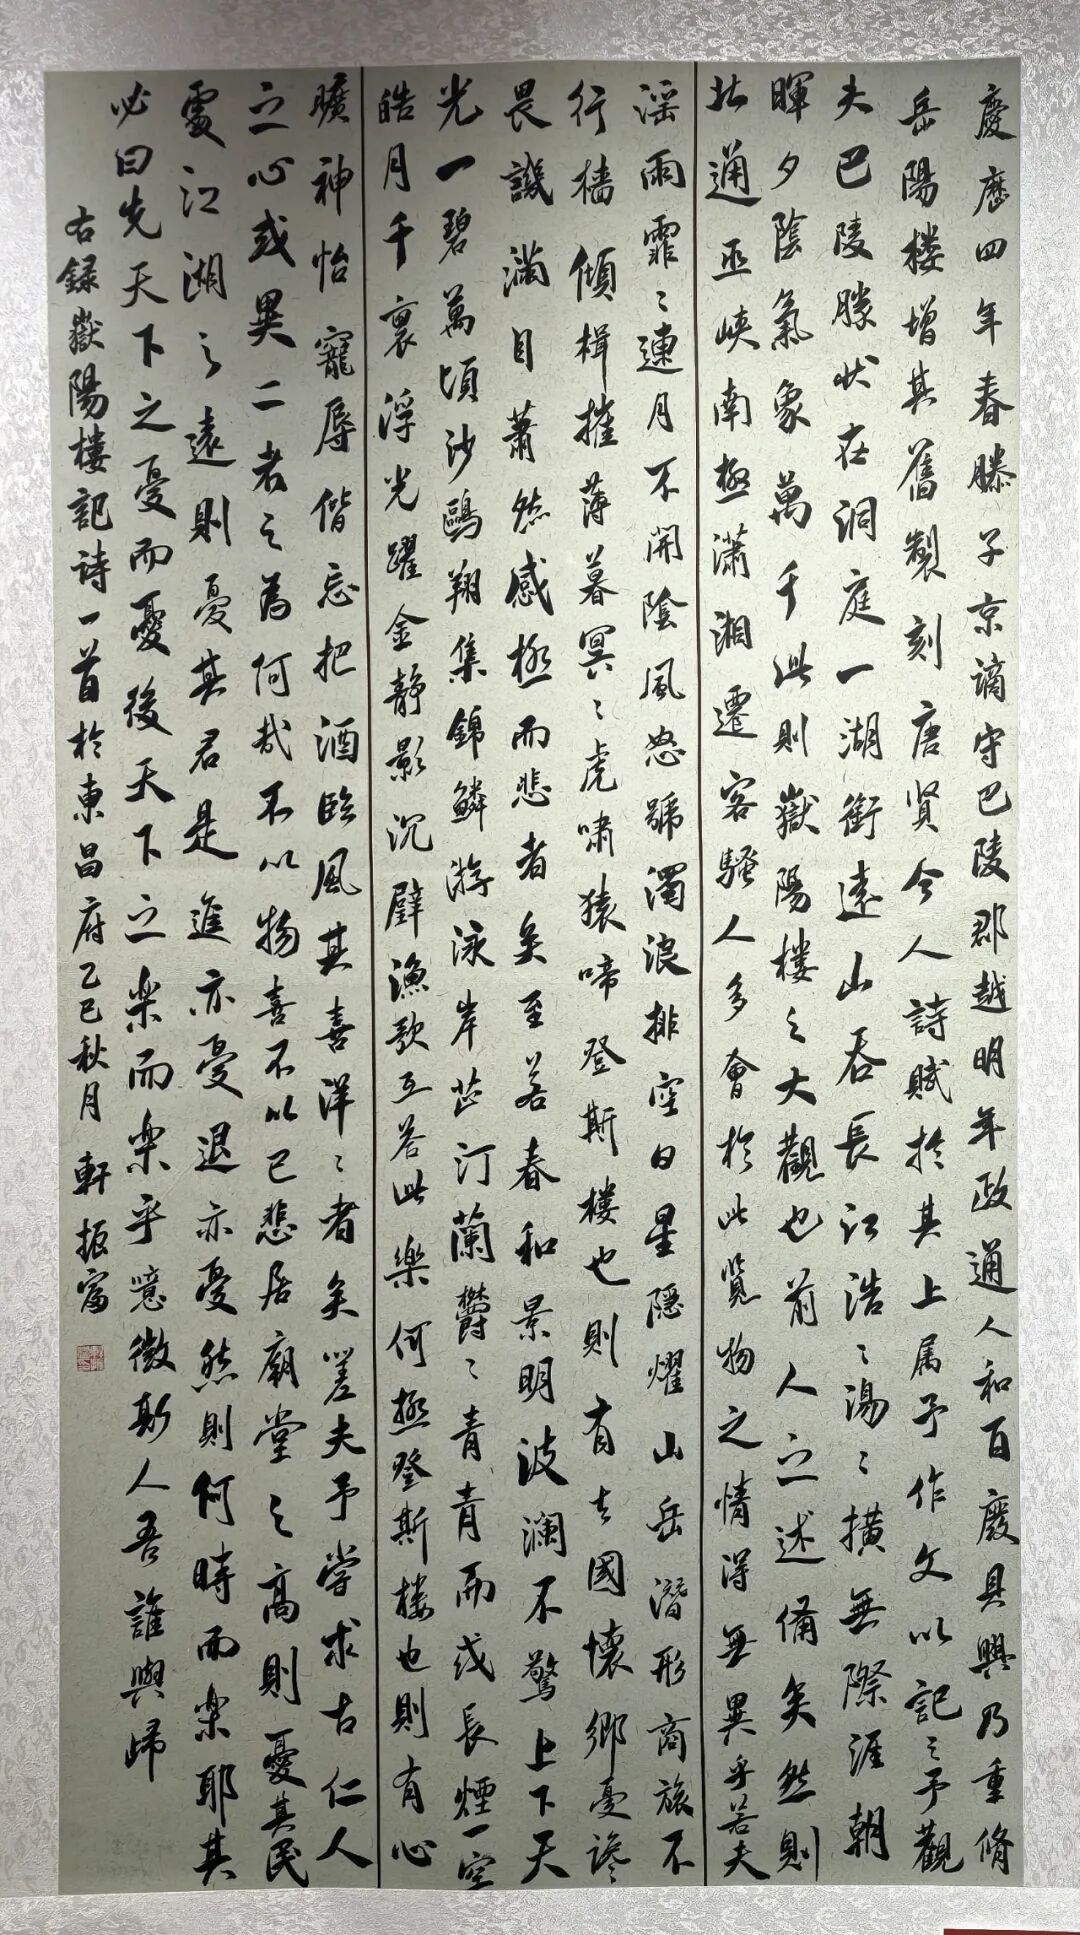 慶歷四年春滕子京謫守巴陵郡越明年政通人和百廢具興乃重脩
岳陽楼增其舊製刻唐贤今人詩賦於其上属予作文以記之予觀
夫巴陵勝状在洞庭一湖銜遠山吞長江浩〻湯〻横無際涯朝
暉夕陰氣象萬千此則嶽陽楼之大觀也前人之述備矣然則
北通巫峡南極瀟湘遷客騷人多會於此覽物之情得無異乎若夫
淫雨霏〻連月不開陰風怒號濁浪排空日星隱耀山岳潛形商旅不
行檣傾楫摧薄暮冥〻虎嘯猿啼登斯楼也則有去國懷鄉憂讒
畏譏滿目蕭然感極而悲者矣至若春和景明波瀾不驚上下天
光一碧萬頃沙鷗翔集錦鱗游泳岸芷汀蘭欝〻青青而或長煙一空
皓月千裏浮光躍金静影沉璧漁歌互答此樂何極登斯楼也則有心
曠神怡寵辱偕忘把酒臨風其喜洋〻者矣嗟夫予嘗求古仁人
之心或異二者之為何哉不以物喜不以己悲居廟堂之高則憂其民
處江湖之遠則憂其君是進亦憂退亦憂然則何時而楽耶其
必曰先天下之憂而憂後天下之楽而楽乎噫微斯人吾誰與歸
右録嶽陽樓記詩一首於東昌府乙巳秋月 軒振富